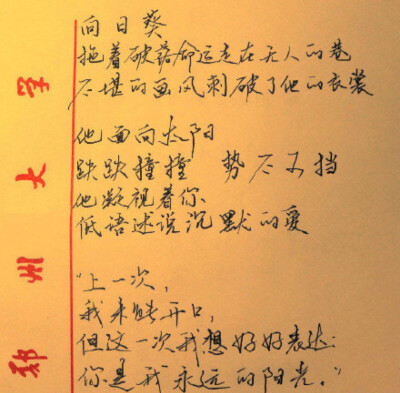 向日葵
拖着破落命运走在无人的巷
不堪的画风刺破了他的衣裳
他面向太阳
跌跌撞撞 势不可挡
他凝视着你
低语述说沉默的爱
“上一次，
我未能开口，
但这一次我想好好表达：
你是我永远的阳光。”
郑州大学